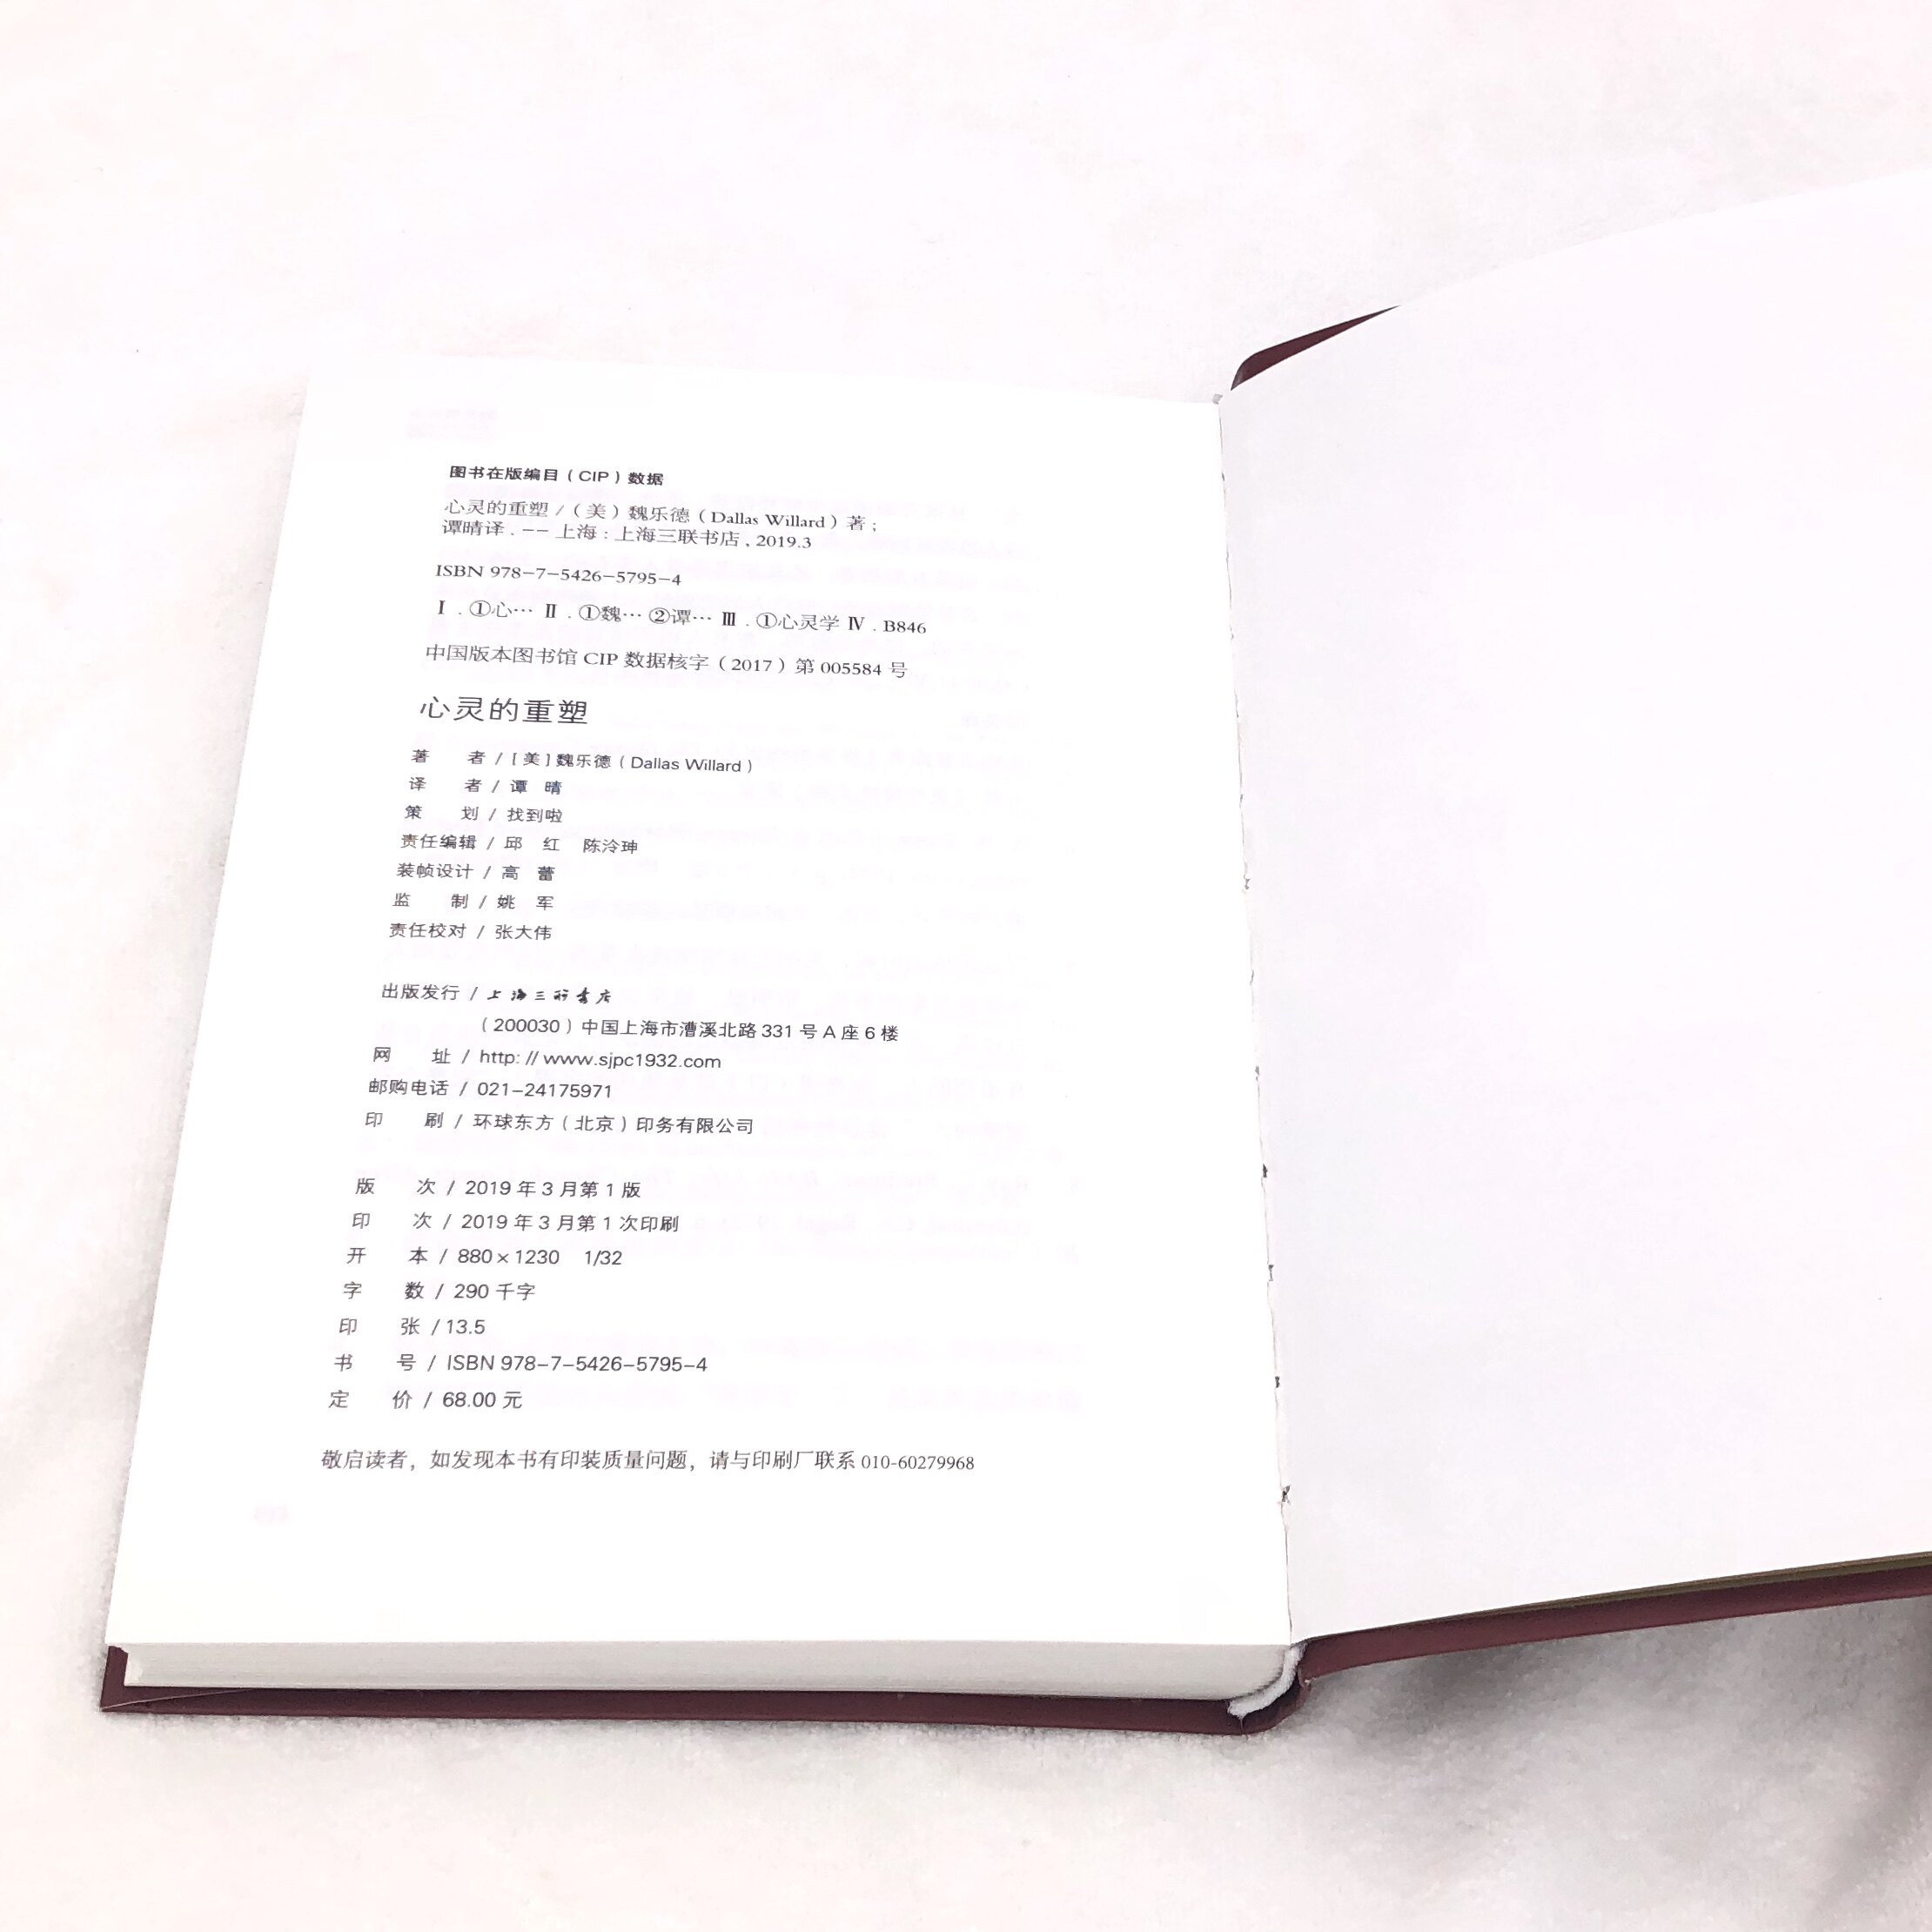 图书在版编目（CIP）数据
心灵的重塑 /（美）魏乐德（Dallas Willard）著；
谭晴译 . —— 上海 : 上海三联书店 , 2019.3
ISBN 978-7-5426-5795-4
Ⅰ . ①心… Ⅱ . ①魏… ②谭… Ⅲ . ①心灵学 Ⅳ . B846
中国版本图书馆 CIP 数据核字（2017）第 005584 号
心灵的重塑
著 者 / [ 美 ] 魏乐德（Dallas Willard）
译 者 / 谭 晴
策 划 / 找到啦
责任编辑 / 邱 红 陈泠珅
装帧设计 / 高 蕾
监 制 / 姚 军
责任校对 / 张大伟
出版发行 / 上海三联书店
（200030）中国上海市漕溪北路 331 号 A 座 6 楼
网 址 / http: // www.sjpc1932.com
邮购电话 / 021-24175971
印 刷 / 环球东方（北京）印务有限公司
版 次 / 2019 年 3 月第 1 版
印 次 / 2019 年 3 月第 1 次印刷
开 本 / 880×1230 1/32
字 数 / 290 千字
印 张 / 13.5
书 号 / ISBN 978-7-5426-5795-4
定 价 / 68.00 元
敬启读者，如发现本书有印装质量问题，请与印刷厂联系 010-60279968